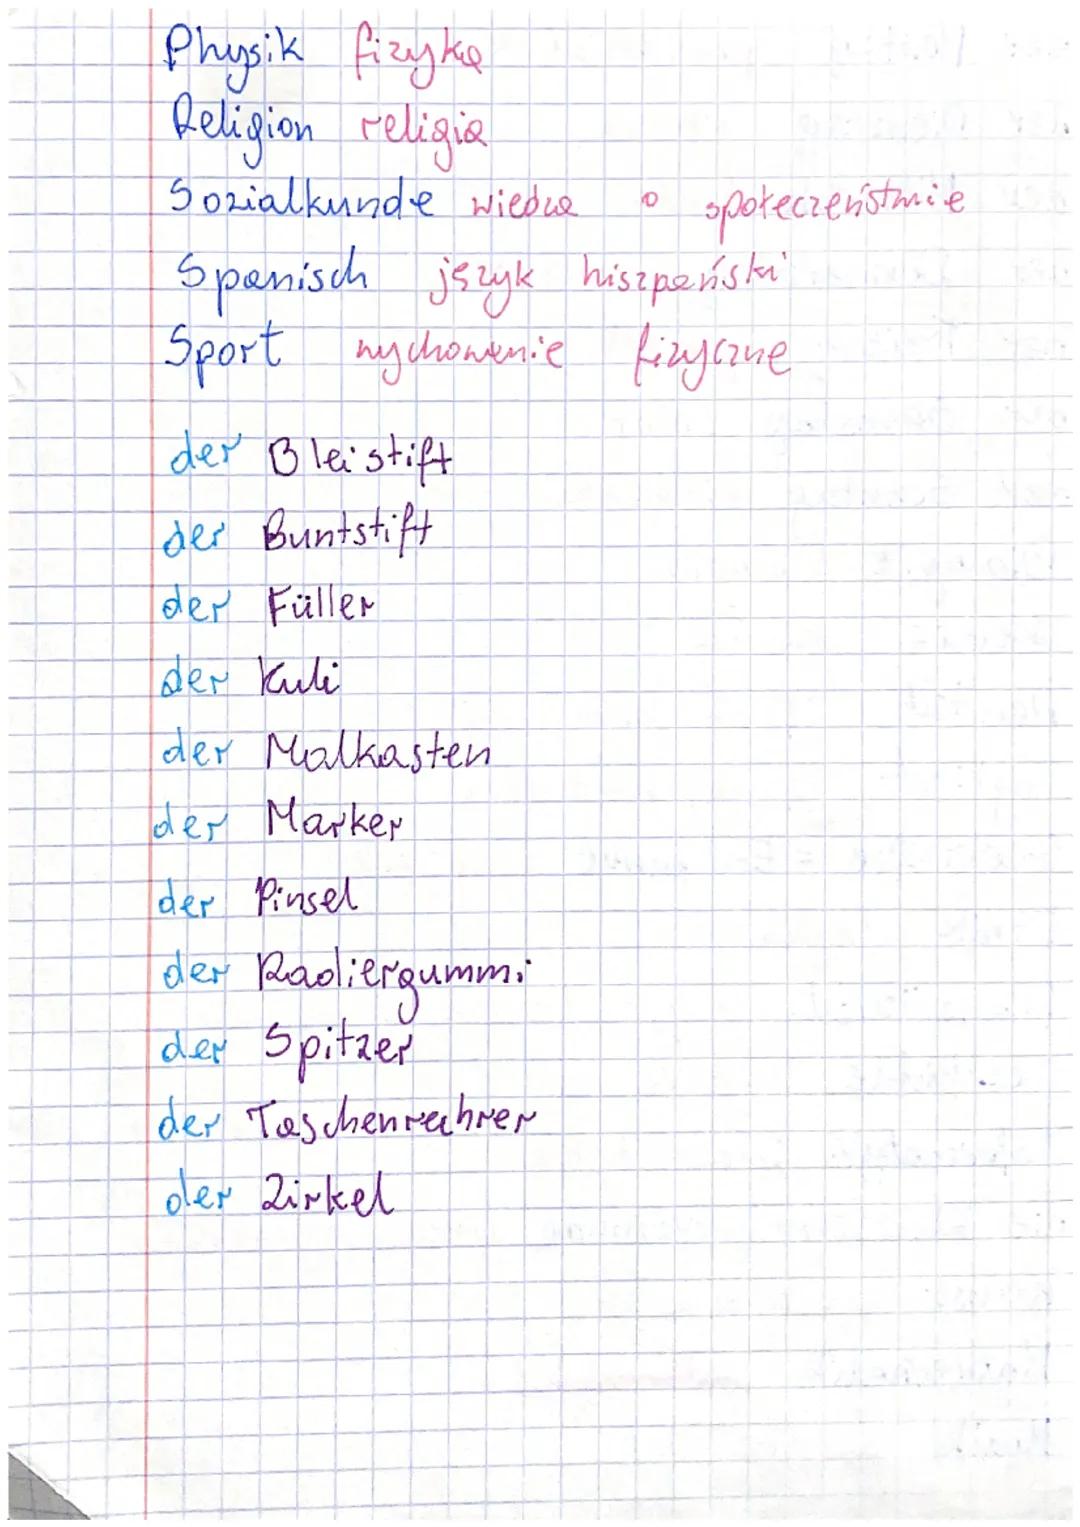 Physik fizyka
Religion religia
Sozialkunde wiedza o społeczeństwie
Spanisch język hiszpański
Sport wychowanie fizyczne
der Bleistift
der Buntstift
der Füller
der Kuli
der Malkasten
der Marker
der Pinsel
der Radiergummi
der Spitzer
der Taschenrechner
der Zirkel